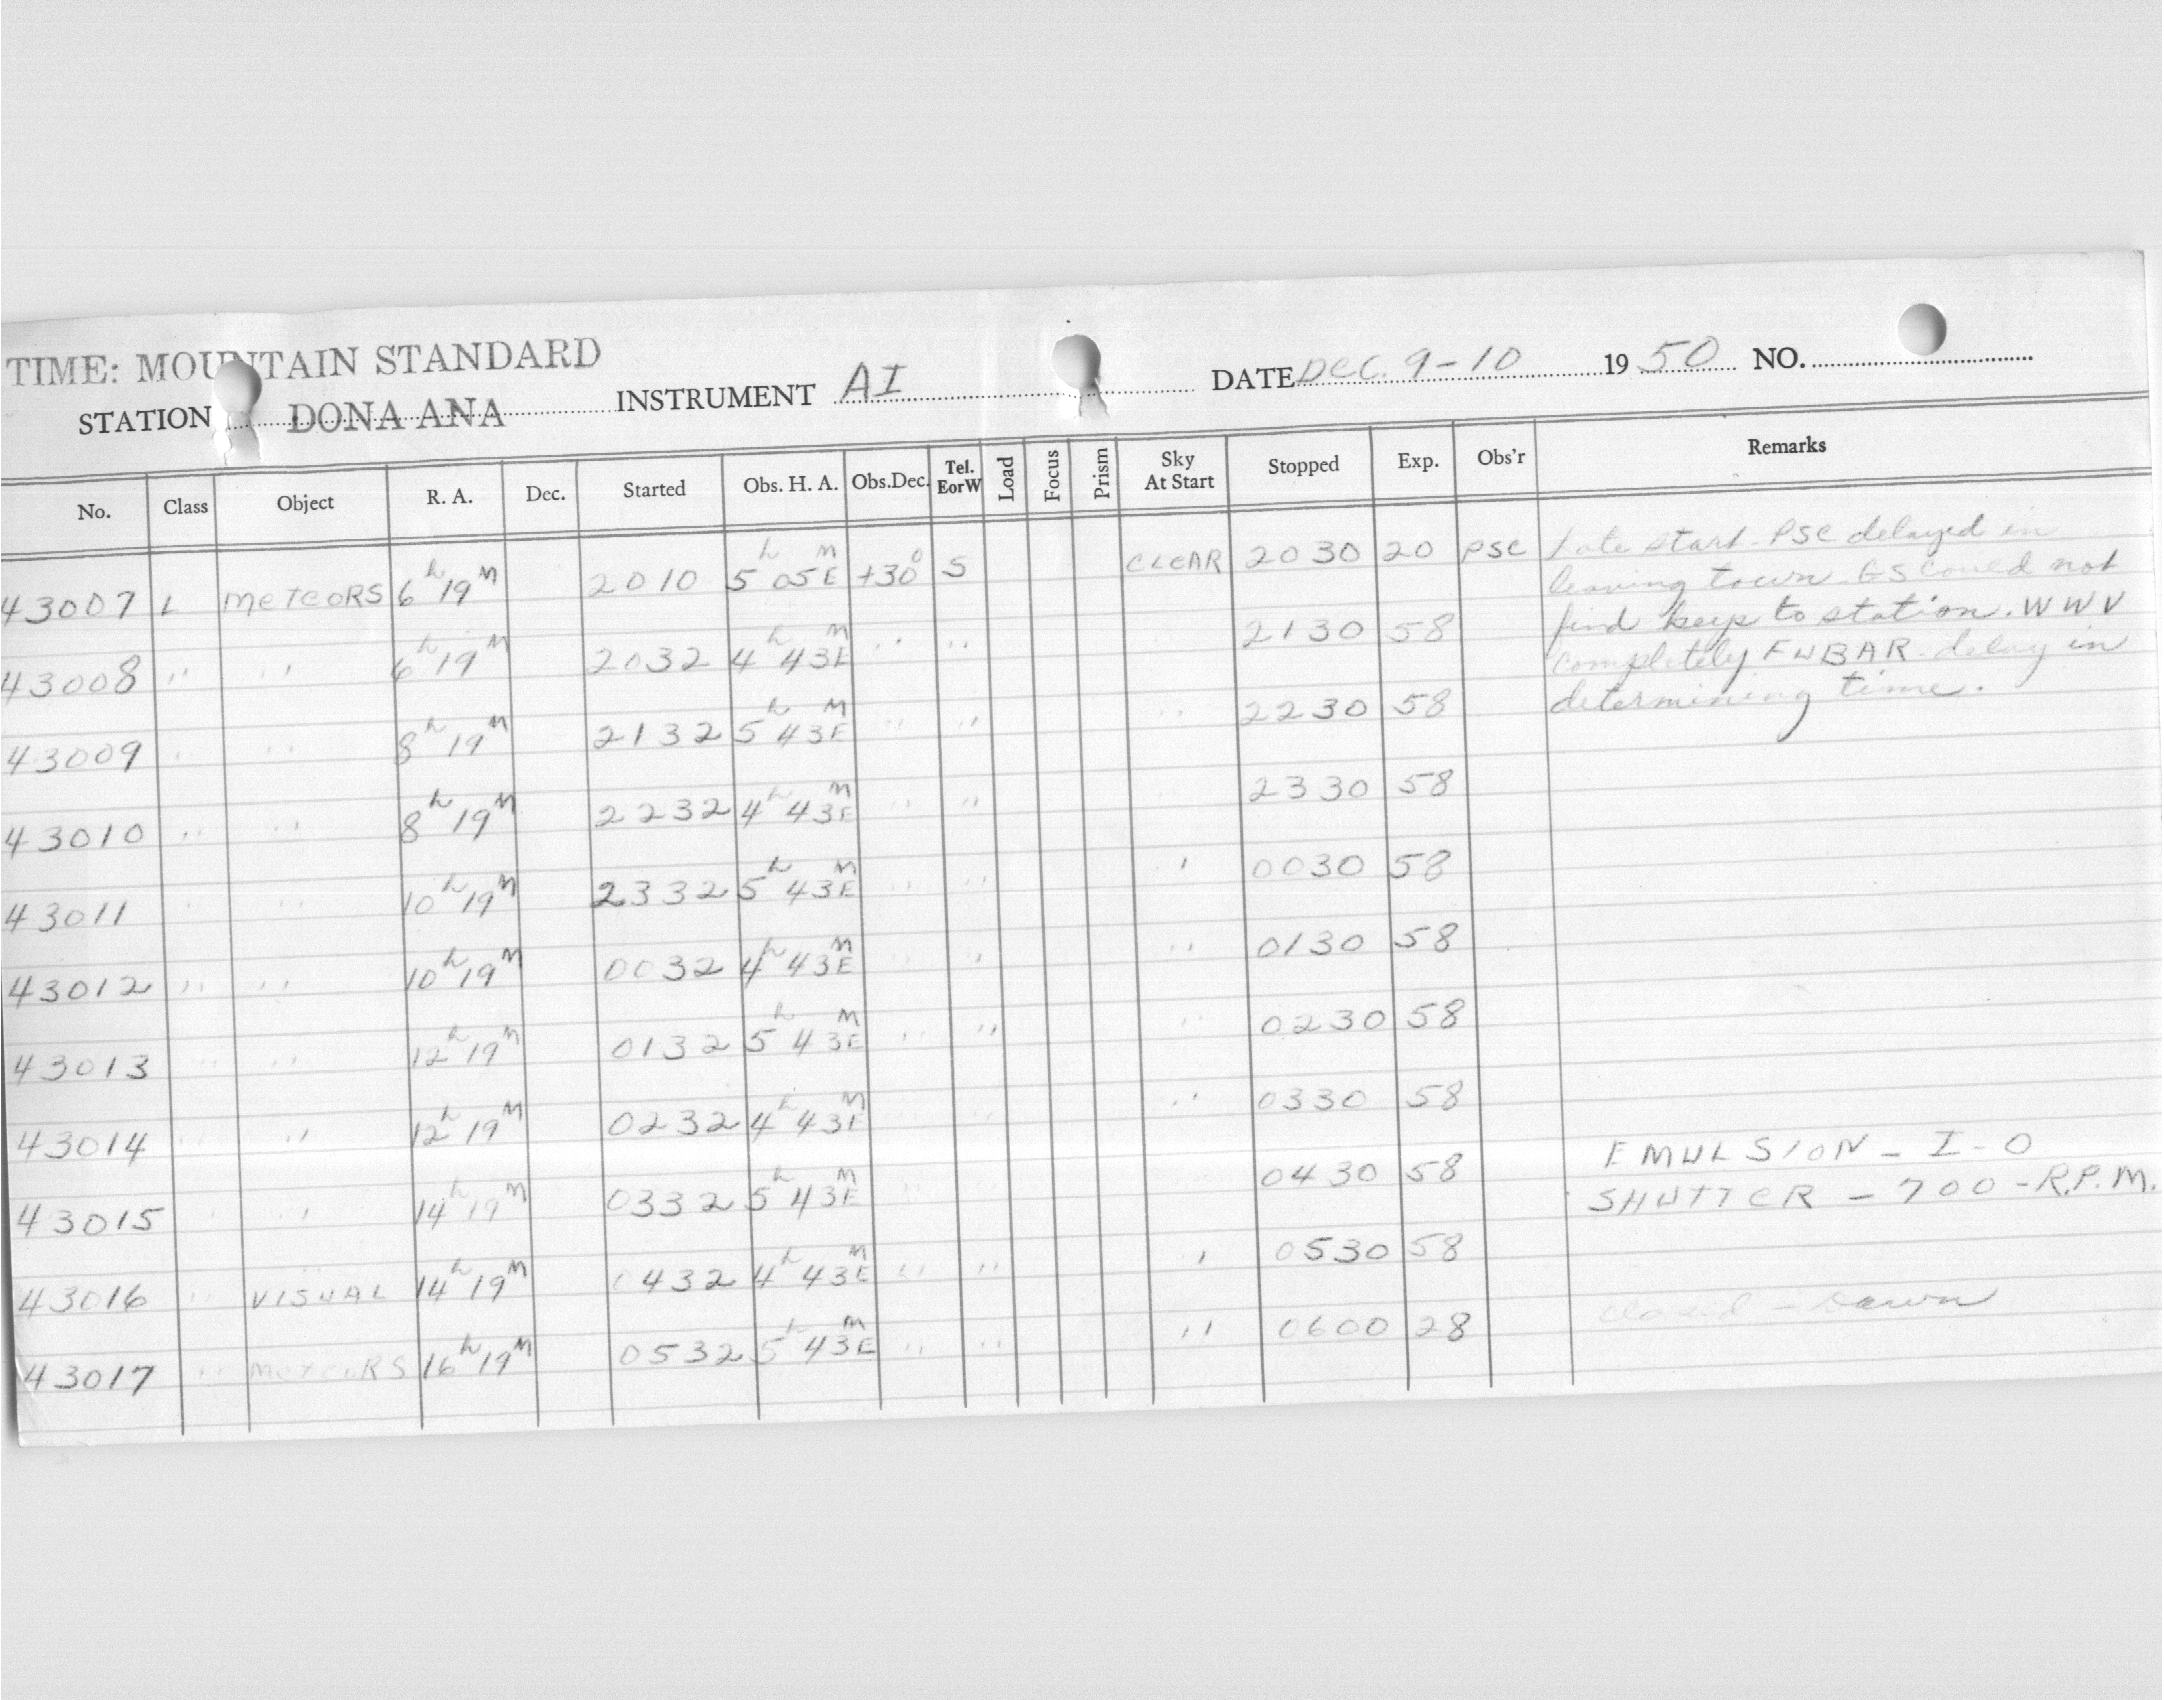 TIME: MOUNTAIN STANDARD
STATION DONA ANA INSTRUMENT AI DATE DEC. 9-10 1950 NO.
No. Class Object R. A. Dec. Started Obs. H. A. Obs.Dec. Tel. EorW Load Focus Prism Sky At Start Stopped Exp. Obs'r Remarks
43007 L METEORS 6h19M 2010 5h05ME +30° S CLEAR 2030 20 PSC Late start - PSC delayed in
leaving town. GS could not
43008 " " 6h19M 2032 4h43ME " " 2130 58 find keys to station. WWV
completely FUBAR - delay in
43009 " " 8h19M 2132 5h43ME " " " 2230 58 determining time.
43010 " " 8h19M 2232 4h43ME " " 2330 58
43011 " " 10h19M 2332 5h43ME " " " 0030 58
43012 " " 10h19M 0032 4h43ME " " " 0130 58
43013 " " 12h19M 0132 5h43ME " " " 0230 58
43014 " " 12h19M 0232 4h43ME " " 0330 58
EMULSION - I-O
43015 " " 14h19M 0332 5h43ME 0430 58 SHUTTER - 700 - R.P.M.
43016 " VISUAL 14h19M 0432 4h43ME " " " 0530 58
43017 " METEORS 16h19M 0532 5h43ME " " " 0600 28 Closed - Dawn